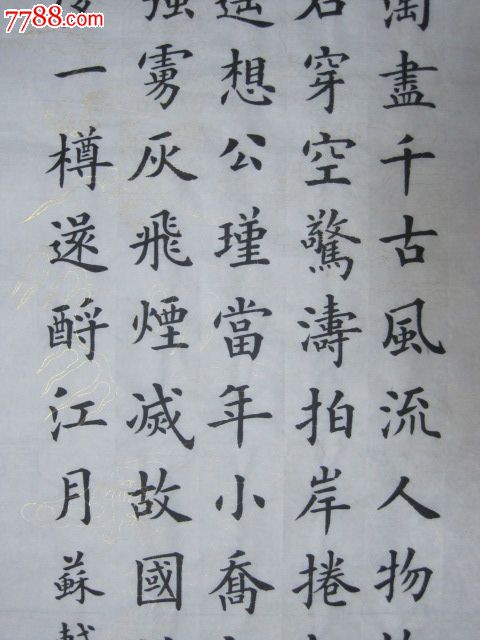 7788.com
淘盡千古風流人物
石穿空驚濤拍岸捲
遥想公瑾當年小喬
強虜灰飛煙滅故國
一樽還酹江月蘇